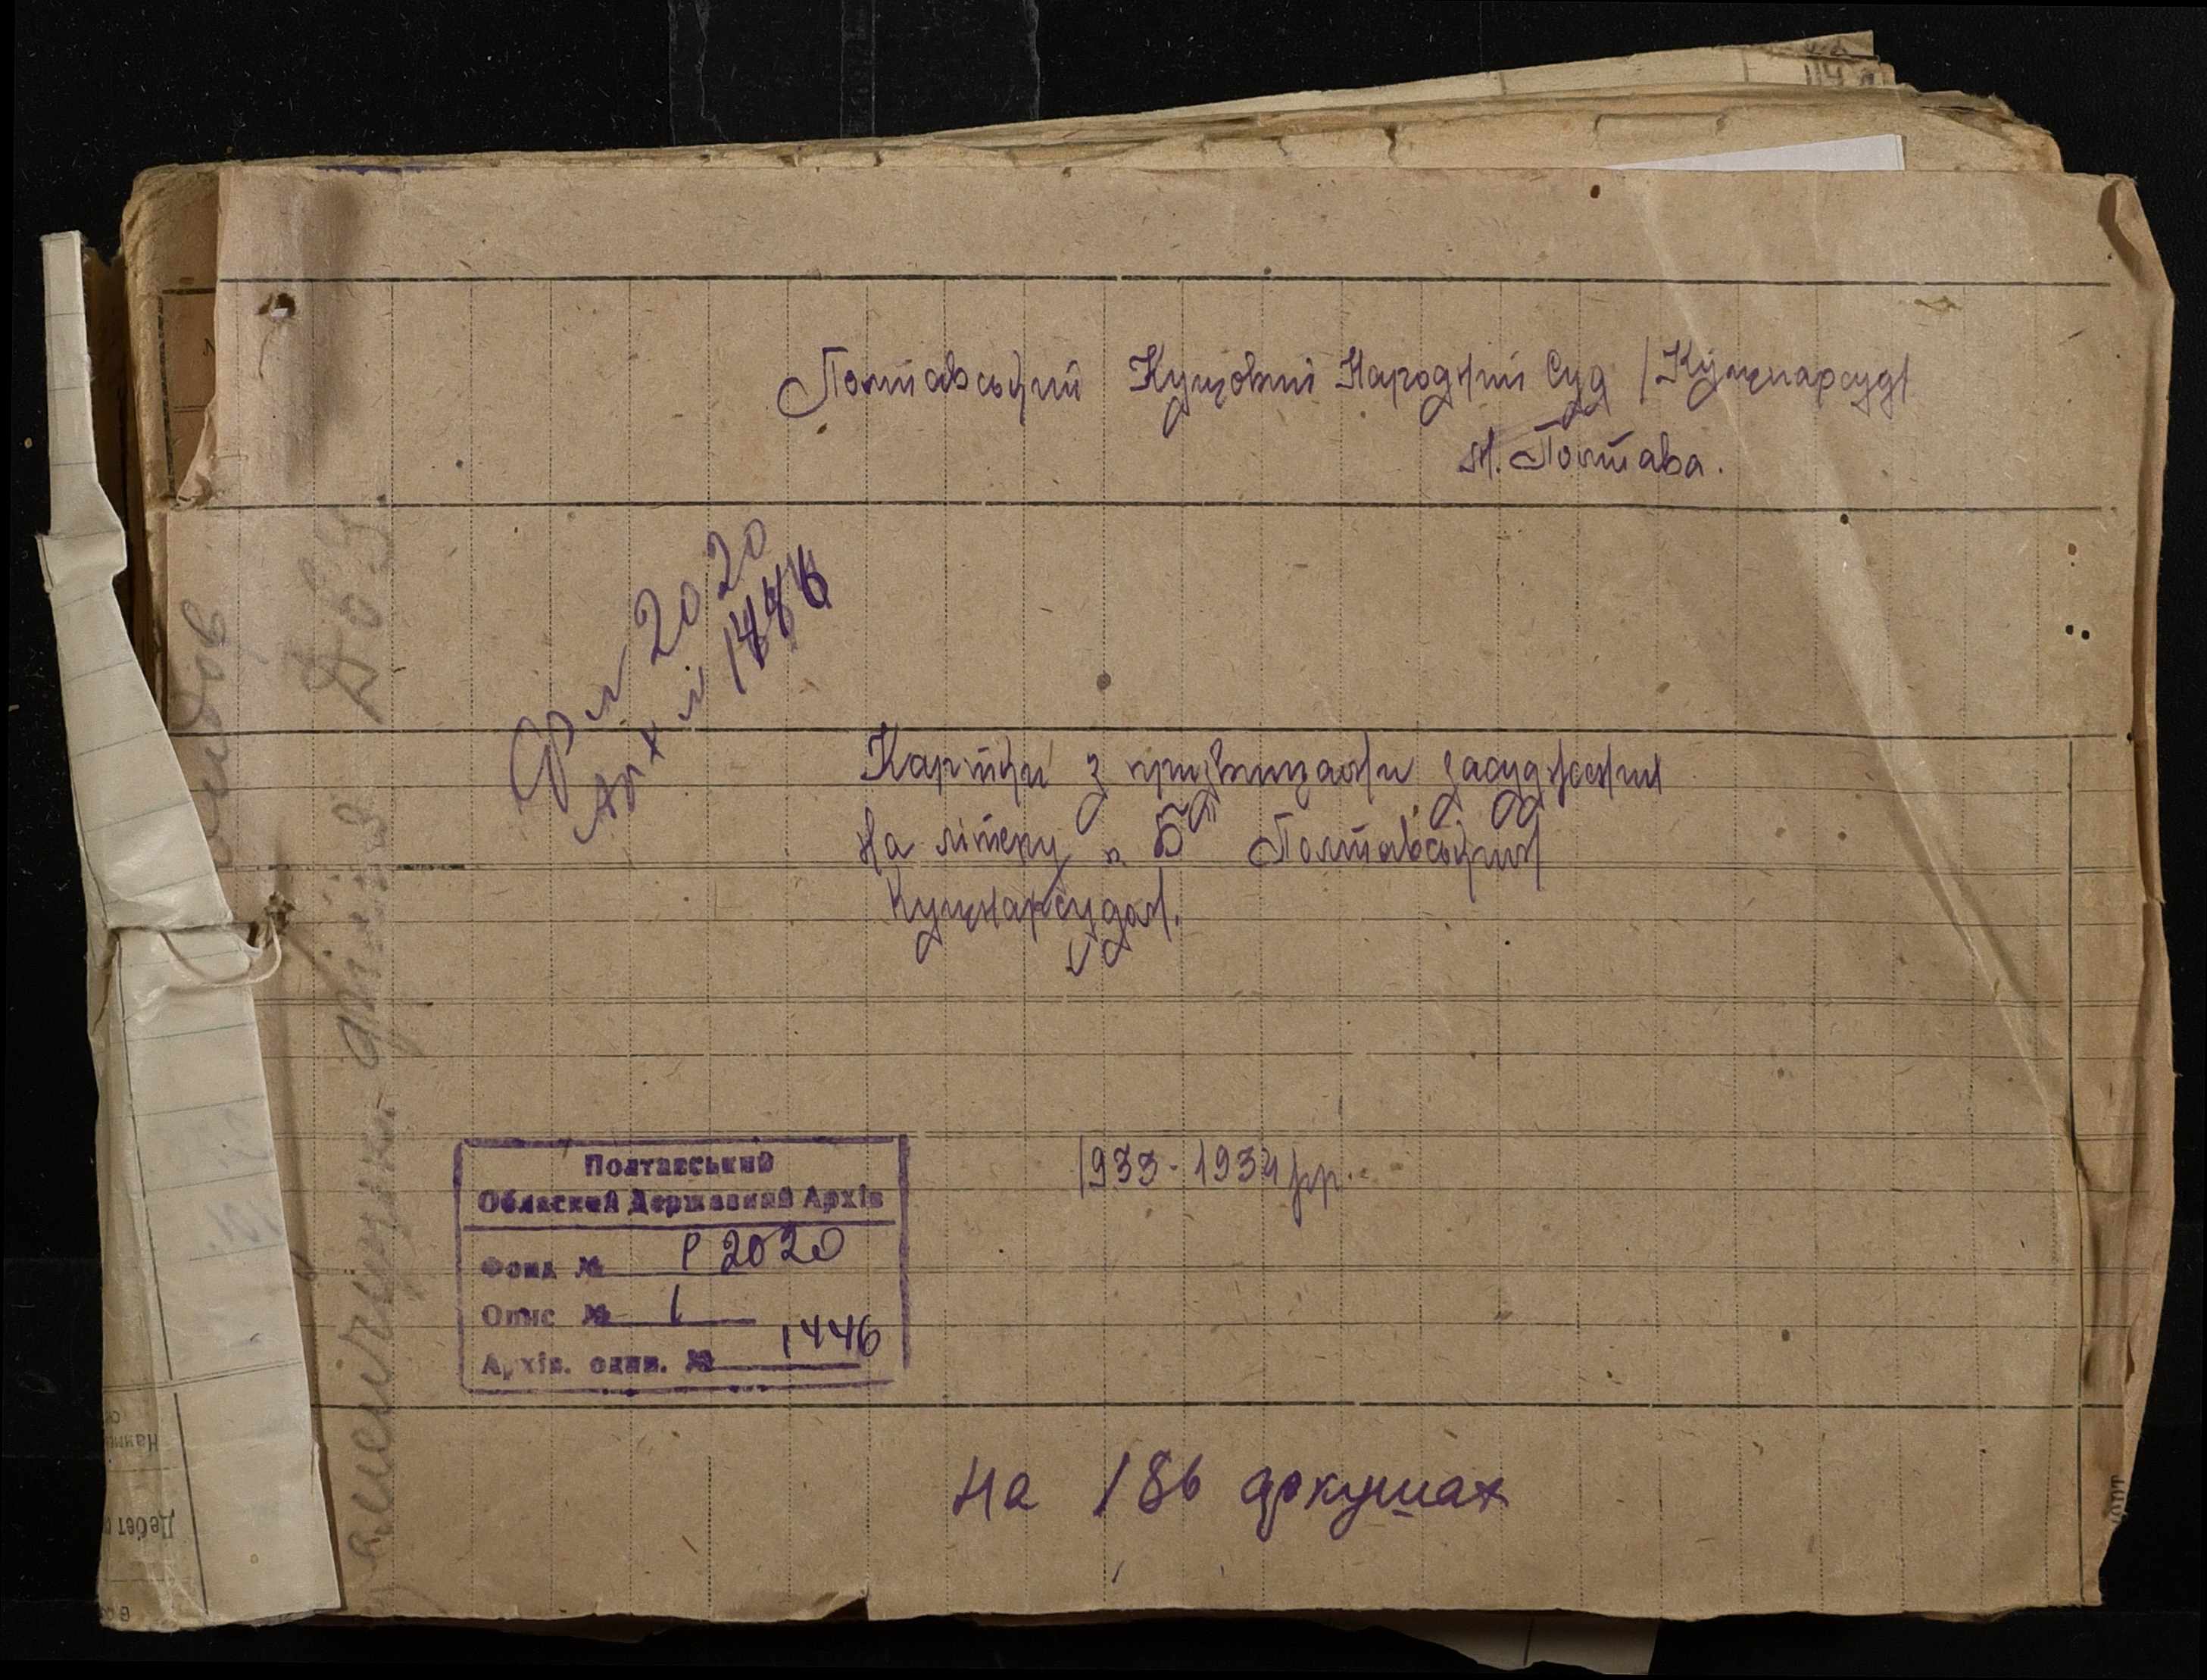 Полтавський Кущовий Народний Суд /Кущнарсуд/
м. Полтава.
Ф № 2020
Арх № 1446
Картки з прізвищами засуджених
на літеру "Б" Полтавським
Кущнарсудом.
1933-1934 рр.
Полтавський
Обласний Державний Архів
Фонд № Р 2020
Опис № 1
Архів. один. № 1446
на 186 аркушах
Дебет